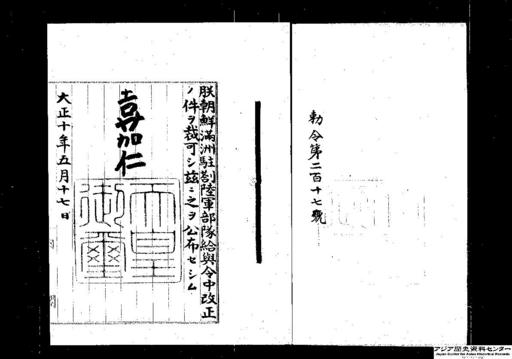 勅令第二百十七號
朕朝鮮滿洲駐剳陸軍部隊給與令中改正
ノ件ヲ裁可シ玆ニ之ヲ公布セシム
嘉仁
天皇
御璽
大正十年五月十七日
アジア歴史資料センター
Japan Center for Asian Historical Records